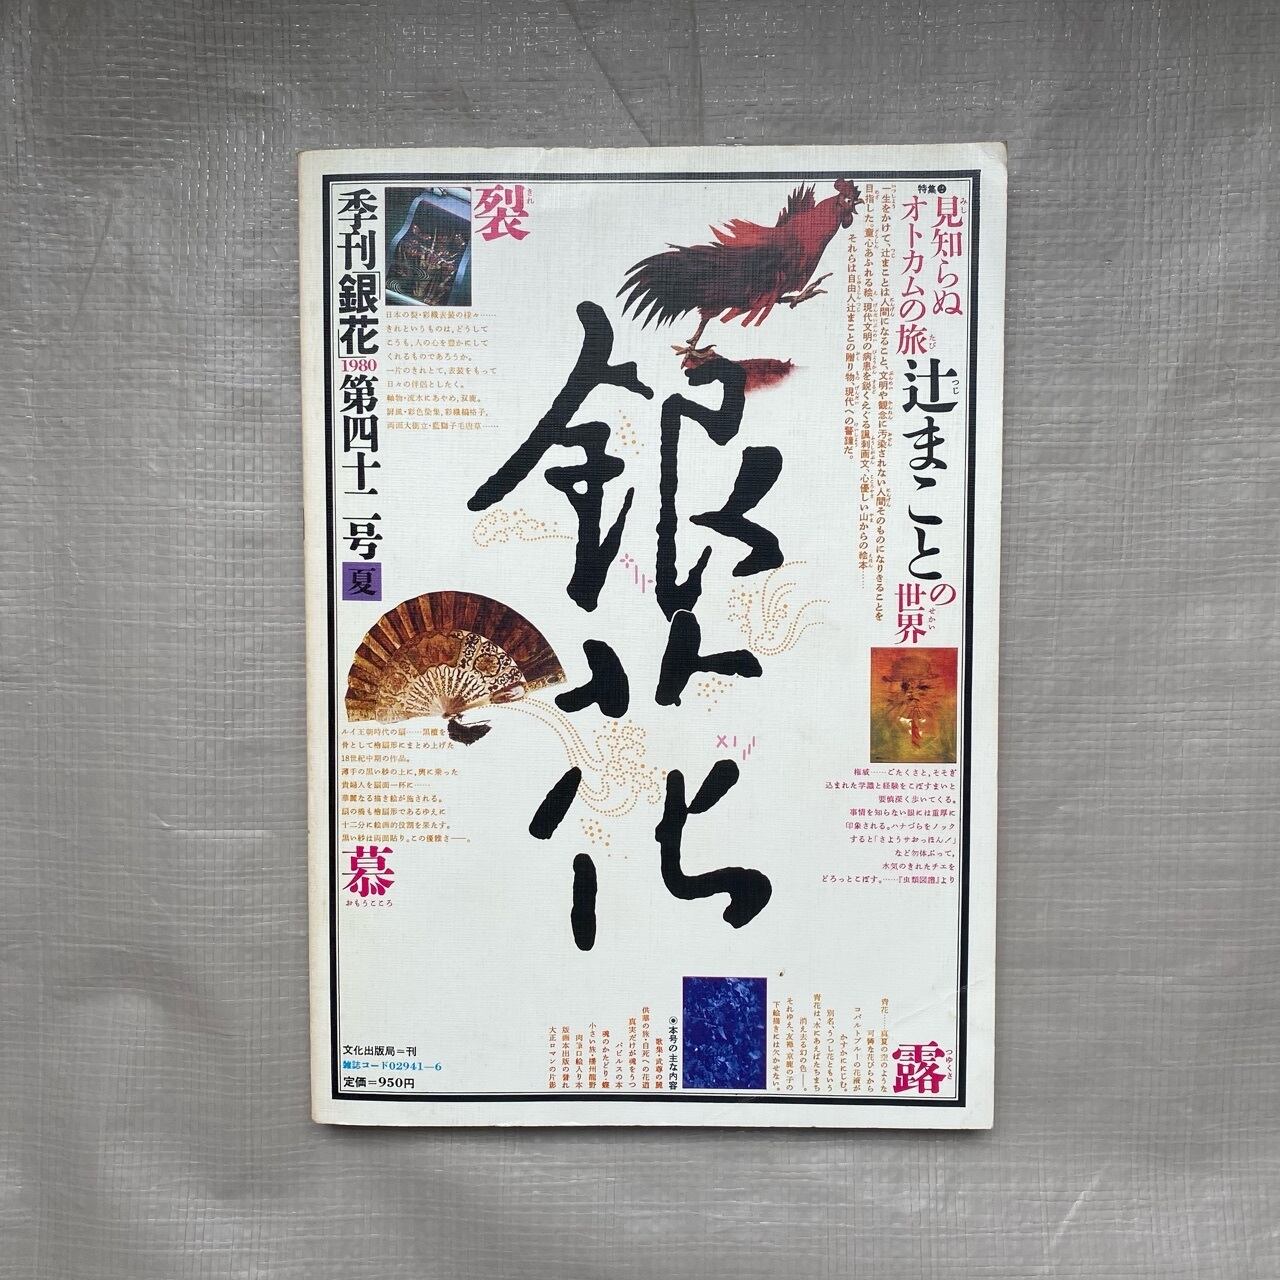 季刊「銀花」1980第四十二号夏
裂
きれ
日本の裂・彩織表装の様々……
きれというものは、どうして
こうも、人の心を豊かにして
くれるものであろうか。
一片のきれとて、表装をもって
日々の伴侶としたく。
軸物・流水にあやめ、双鹿。
屏風・彩色染集、彩織縞格子。
両面大衝立・藍獅子毛唐草……
特集❷
見知らぬ
みし
オトカムの旅
たび
辻まことの世界
つじ
せかい
一生をかけて、辻まことは人間になること、文明や観念に汚染されない人間そのものになりきることを
目指した。童心あふれる絵、現代文明の病患を鋭くえぐる諷刺画文、心優しい山からの絵本……
それらは自由人辻まことの贈り物、現代への警鐘だ。
銀花
ルイ王朝時代の扇……黒檀を
骨として檜扇形にまとめ上げた
18世紀中期の作品。
薄手の黒い紗の上に、輿に乗った
貴婦人を扇面一杯に……
華麗なる描き絵が施される。
扇の橋も檜扇形であるゆえに
十二分に絵画的役割を果たす。
黒い紗は両面貼り。この優雅さ――。
慕
おもうこころ
権威……ごたくさと、そそぎ
込まれた学識と経験をこぼすまいと
要慎深く歩いてくる。
事情を知らない眼には重厚に
印象される。ハナづらをノック
すると「さようサおっほん！」
など勿体ぶって、
水気のきれたチエを
どろっとこぼす。……『虫類図譜』より
露
つゆくさ
青花……真夏の空のような
可憐な花びらから
コバルトブルーの花液が
かすかににじむ。
別名、うつし花ともいう
青花は、水にあえばたちまち
消え去る幻の色――。
それゆえ、友禅、京鹿の子の
下絵描きには欠かせない。
◉本号の主な内容
歌集・武尊の麓
供華の旅・自死への花道
真実だけが魂をうつ
パピルスの本
魂のかたどり・蝶
小さい旅・播州龍野
肉筆口絵入り本
版画本出版の誉れ
大正ロマンの片影
文化出版局＝刊
雑誌コード02941―6
定価＝950円